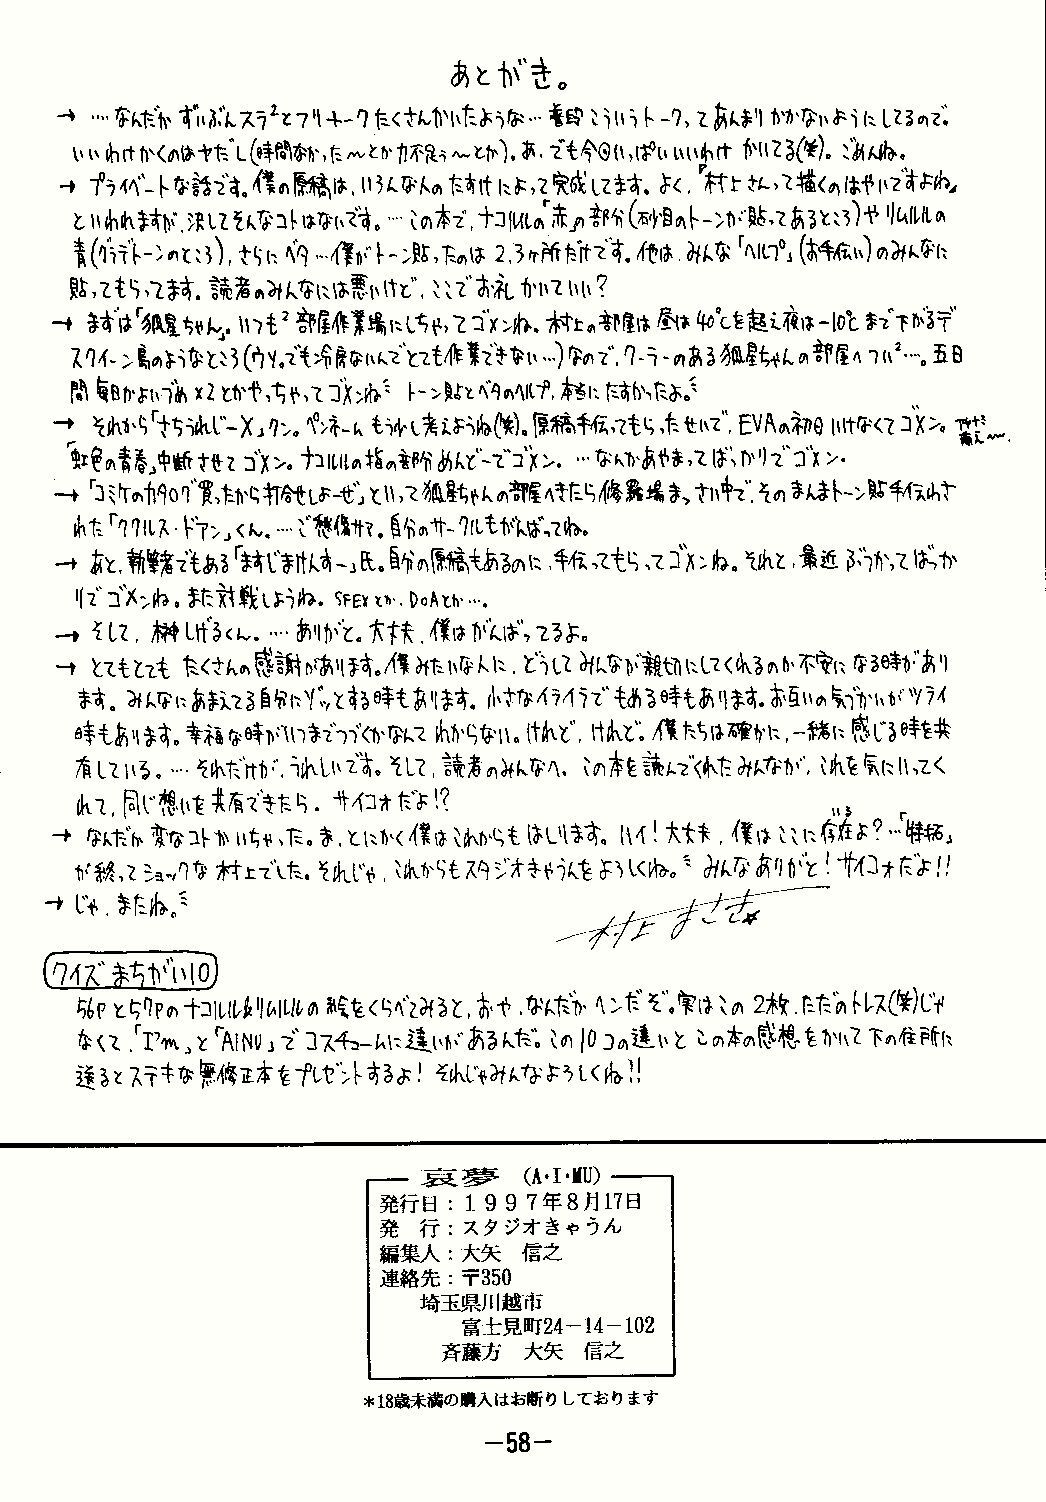 あとがき。
→ ‥‥なんだか ずいぶんスラ²とフリートークたくさんかいたような… 普段こういうトークってあんまりかかないようにしてるので。
いいわけかくのはヤだし(時間なかった〜とか力不足ぅ〜とか)。あ、でも今回いっぱいいいわけ かいてる(笑)。ごめんね。
→ プライベートな話です。僕の原稿は、いろんな人のたすけによって完成してます。よく、「村上さんって描くのはやいですよね」
といわれますが、決してそんなコトはないです。…この本で、ナコルルの「赤」の部分(砂目のトーンが貼ってあるところ)やリムルルの
青(グラデトーンのところ)、さらにベタ…僕がトーン貼ったのは2,3ヶ所だけです。他は、みんな「ヘルプ」(お手伝い)のみんなに
貼ってもらってます。読者のみんなには悪いけど、ここでお礼かいていい?
→ まずは「狐星ちゃん」。いつも² 部屋作業場にしちゃってゴメンね。村上の部屋は昼は40℃を超え夜は-10℃まで下がるデ
スクイーン島のようなところ(ウソ。でも冷房ないんでとても作業できない…)なので、クーラーのある狐星ちゃんの部屋へつい²…。五日
間毎日かよいづめ×2とかやっちゃってゴメンね トーン貼とベタのヘルプ、本当にたすかったよ。
→ それから「さちうれじーX」クン。ペンネームもう少し考えようね(笑)。原稿手伝ってもらったせいで、EVAの初日いけなくてゴメン。
「虹色の青春」中断させてゴメン。ナコルルの指の部分めんどーでゴメン。…なんかあやまってばっかりでゴメン。
→ 「コミケのカタログ買ったから打合せしよーぜ」といって狐星ちゃんの部屋へきたら修羅場まっさい中で、そのまんまトーン貼手伝わさ
れた「ククルス・ドアン」くん。‥‥ご愁傷サマ。自分のサークルもがんばってね。
→ あと、執筆者でもある「ますじまけんすー」氏。自分の原稿もあるのに、手伝ってもらってゴメンね。それと、最近 ぶつかってばっか
りでゴメンね。また対戦しようね。SFEXとか、DOAとか…。
→ そして、榊しげるくん。‥‥ありがと。大丈夫、僕はがんばってるよ。
→ とてもとても たくさんの感謝があります。僕みたいな人に、どうしてみんなが親切にしてくれるのか不安になる時があり
ます。みんなにあまえてる自分にゾッとする時もあります。小さなイライラでもめる時もあります。お互いの気づかいがツライ
時もあります。幸福な時がいつまでつづくかなんてわからない。けれど、けれど。僕たちは確かに、一緒に感じる時を共
有している。…それだけが、うれしいです。そして、読者のみんなへ。この本を読んでくれたみんなが、これを気にいってく
れて、同じ想いを共有できたら。サイコォだよ!?
→ なんだか変なコトかいちゃった。ま、とにかく僕はこれからもはしります。ハイ!大丈夫、僕はここに存在(いる)よ?…「特捜」
が終ってショックな村上でした。それじゃ、これからもスタジオきゃうんをよろしくね。 みんなありがと! サイコォだよ!!
→ じゃ、またね。
村上まさき
クイズ まちがい10
56Pと57Pのナコルル&リムルルの絵をくらべてみると、おや、なんだかヘンだぞ。実はこの2枚、ただのトレス(笑)じゃ
なくて、「I'm」と「AINU」でコスチュームに違いがあるんだ。この10コの違いとこの本の感想をかいて下の住所に
送るとステキな無修正本をプレゼントするよ! それじゃみんなよろしくね!!
哀夢 (A・I・MU)
発行日：1997年8月17日
発　行：スタジオきゃうん
編集人：大矢　信之
連絡先：〒350
埼玉県川越市
富士見町24－14－102
斉藤方　大矢　信之
＊18歳未満の購入はお断りしております
－58－